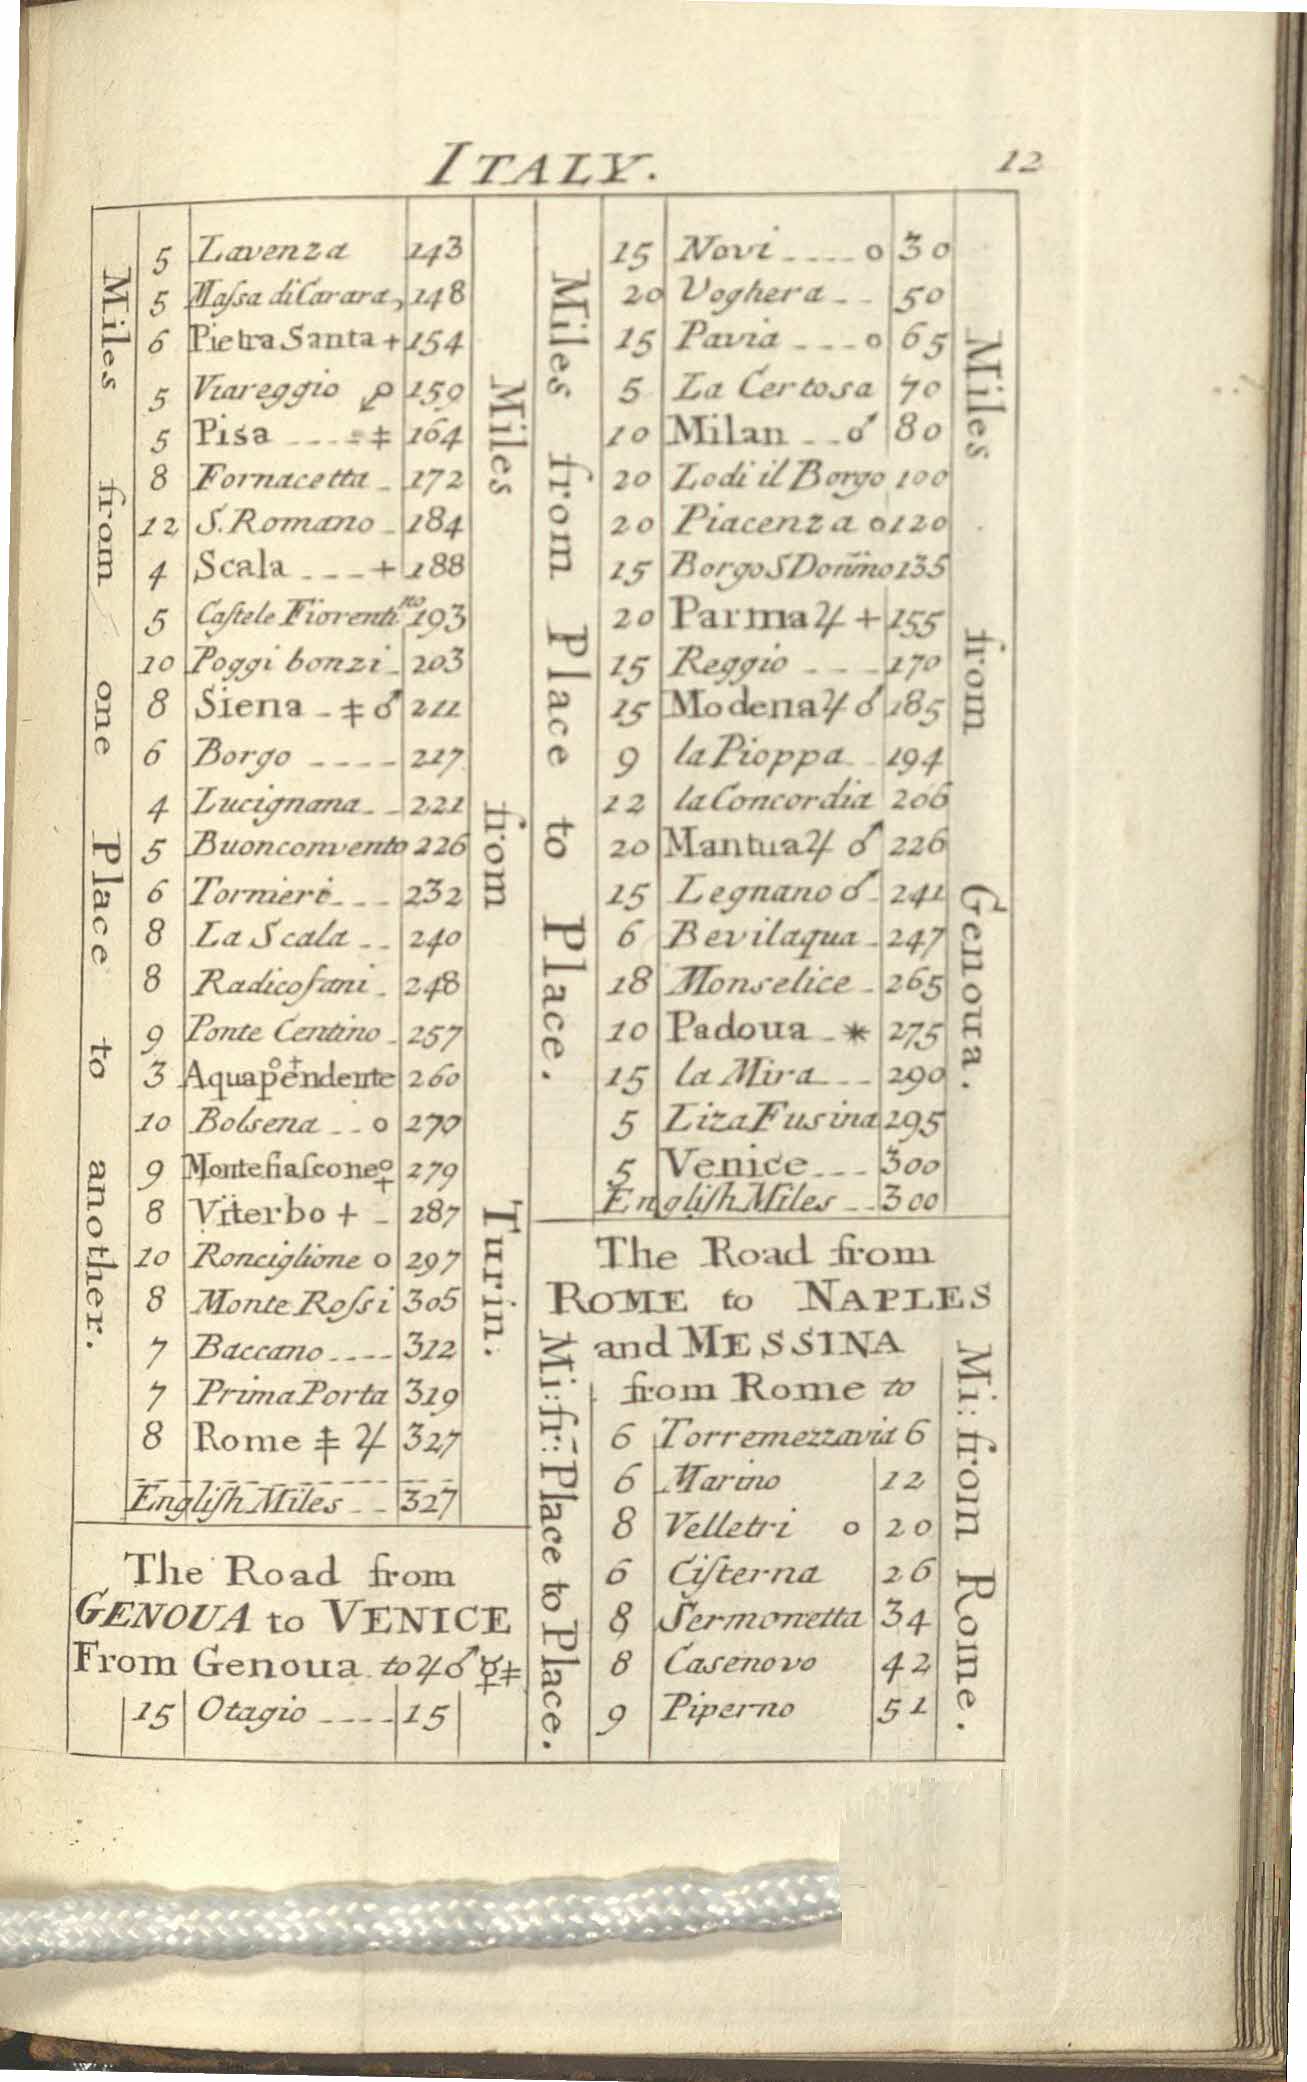 ITALY.
12
Miles from one Place to another.
Miles from Turin.
5 Lavenza 143
5 Maſsa di Carara, 148
6 Pietra Santa + 154
5 Viareggio 159
5 Pisa ‡ 164
8 Fornacetta 172
12 S. Romano 184
4 Scala + 188
5 Caſtele Fiorentino 193
10 Poggi bonzi 203
8 Siena ‡ ♂ 211
6 Borgo 217
4 Lucignana 221
5 Buonconvento 226
6 Tornieri 232
8 La Scala 240
8 Radicofani 248
9 Ponte Centino 257
3 Aquapendente o+ 260
10 Bolsena o 270
9 Montefiaſcone 279
8 Viterbo + 287
10 Ronciglione o 297
8 Monte Roſsi 305
7 Baccano 312
7 Prima Porta 319
8 Rome ♃ 327
Engliſh Miles 327
The Road from
GENOUA to VENICE
From Genoua to ♃ ♂ ☿ ‡
15 Otagio 15
Miles from Place to Place.
Miles from Genoua.
15 Novi o 30
20 Voghera 50
15 Pavia o 65
5 La Certosa 70
10 Milan ♂ 80
20 Lodi il Borgo 100
20 Piacenza o 120
15 Borgo S Doñino 135
20 Parma ♃ + 155
15 Reggio 170
15 Modena ♃ ♂ 185
9 la Pioppa 194
12 la Concordia 206
20 Mantua ♃ ♂ 226
15 Legnano ♂ 241
6 Bevilaqua 247
18 Monselice 265
10 Padoua * 275
15 la Mira 290
5 Liza Fusina 295
5 Venice 300
Engliſh Miles 300
The Road from
ROME to NAPLES
and MESSINA
from Rome to
Mi: fr: Place to Place.
Mi: from Rome.
6 Torremezzavia 6
6 Marino 12
8 Velletri o 20
6 Ciſterna 26
8 Sermonetta 34
8 Casenovo 42
9 Piperno 51